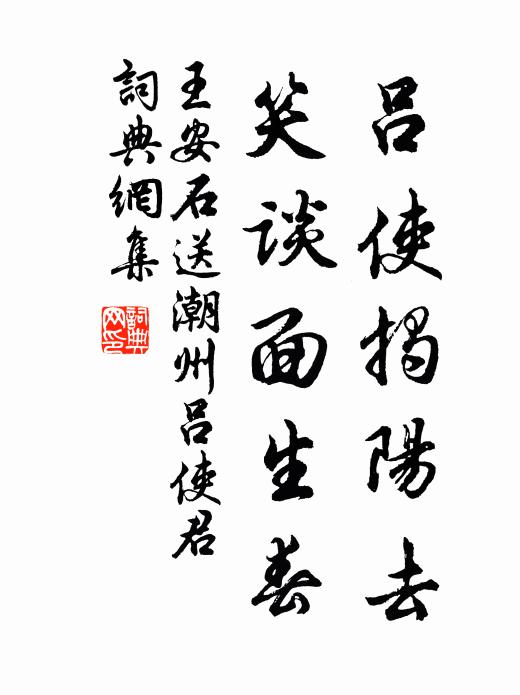 吕使揭陽去
笑談面生春
王安石送潮州吕使君
詞典網集
詞典网印